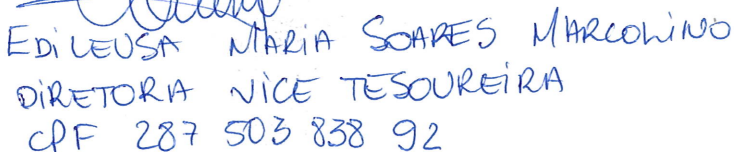 EDILEUSA MARIA SOARES MARCOLINO
DIRETORA VICE TESOUREIRA
CPF 287 503 838 92